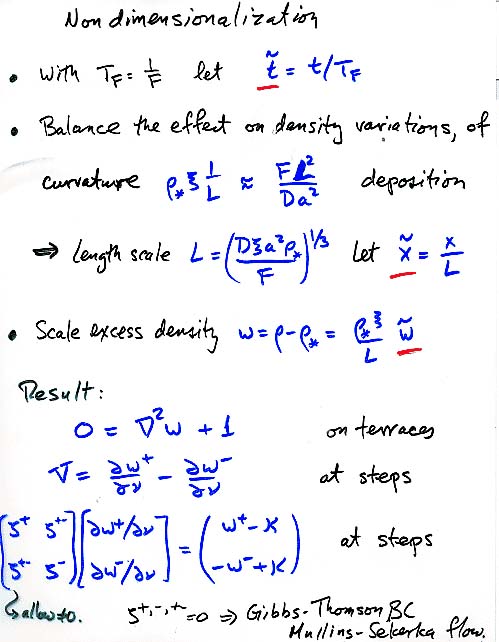 Nondimensionalization
• With T_F = 1/F let t̃ = t/T_F
• Balance the effect on density variations, of
curvature ρ_* ξ 1/L ≈ FL²/Da² deposition
⇒ length scale L = (Dξa²ρ_*/F)^{1/3} Let x̃ = x/L
• Scale excess density w = ρ - ρ_* = ρ_*ξ/L w̃
Result:
0 = ∇²w + 1 on terraces
V = ∂w⁺/∂ν - ∂w⁻/∂ν at steps
(ζ⁺ ζ⁺⁻ ζ⁺⁻ ζ⁻) [∂w⁺/∂ν ∂w⁻/∂ν] = (w⁺-κ -w⁻+κ) at steps
allow to. ζ^{+,-,+-} = 0 ⇒ Gibbs-Thomson BC
Mullins-Sekerka flow.